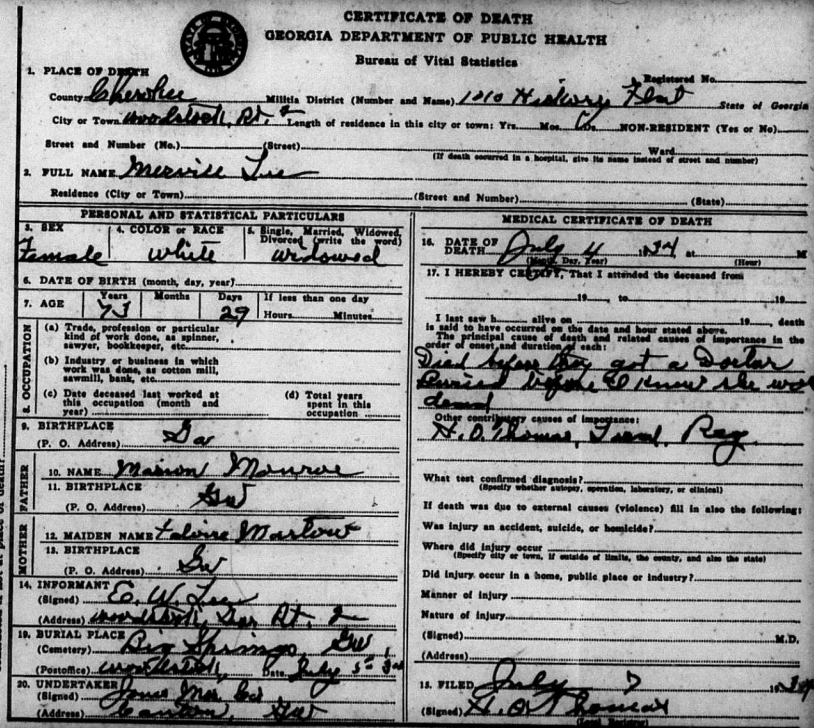 CERTIFICATE OF DEATH
GEORGIA DEPARTMENT OF PUBLIC HEALTH
Bureau of Vital Statistics
1. PLACE OF DEATH
Registered No.
County Cherokee Militia District (Number and Name) 1010 Hickory Flat State of Georgia
City or Town Woodstock, Rt. 2 Length of residence in this city or town: Yrs. Mos. NON-RESIDENT (Yes or No)
Street and Number (No.) (Street) Ward
(If death occurred in a hospital, give its name instead of street and number)
2. FULL NAME Lee
Residence (City or Town) (Street and Number) (State)
PERSONAL AND STATISTICAL PARTICULARS
3. SEX 4. COLOR or RACE 5. Single, Married, Widowed, Divorced (write the word)
Female white widowed
6. DATE OF BIRTH (month, day, year)
7. AGE Years Months Days If less than one day
73 29 Hours Minutes
8. OCCUPATION
(a) Trade, profession or particular
kind of work done, as spinner,
sawyer, bookkeeper, etc.
(b) Industry or business in which
work was done, as cotton mill,
sawmill, bank, etc.
(c) Date deceased last worked at
this occupation (month and
year)
(d) Total years
spent in this
occupation
9. BIRTHPLACE
(P. O. Address) Ga
FATHER
10. NAME Marion Monroe
11. BIRTHPLACE
(P. O. Address) Ga
MOTHER
12. MAIDEN NAME
13. BIRTHPLACE
(P. O. Address) Ga
14. INFORMANT
(Signed) E. W. Lee
(Address) Woodstock, Ga Rt. 2
19. BURIAL PLACE
(Cemetery) Big Springs, Ga,
(Postoffice) Woodstock, Date July 5
20. UNDERTAKER
(Signed) Jones Mer. Co.
(Address) Canton, Ga
MEDICAL CERTIFICATE OF DEATH
16. DATE OF
DEATH July 4 1934 at M
(Month, Day, Year) (Hour)
17. I HEREBY CERTIFY, That I attended the deceased from
19 , to 19
I last saw h alive on 19 , death
is said to have occurred on the date and hour stated above.
The principal cause of death and related causes of importance in the
order of onset and duration of each:
Died before they got a Doctor
Buried before I know she was
dead
Other contributory causes of importance:
H. O. Thomas, Reg.
What test confirmed diagnosis?
(Specify whether autopsy, operation, laboratory, or clinical)
If death was due to external causes (violence) fill in also the following:
Was injury an accident, suicide, or homicide?
Where did injury occur
(Specify city or town, if outside of limits, the county, and also the state)
Did injury occur in a home, public place or industry?
Manner of injury
Nature of injury
(Signed) M.D.
(Address)
15. FILED July 7 1934
(Signed) H. O. Thomas
(Local Registrar)